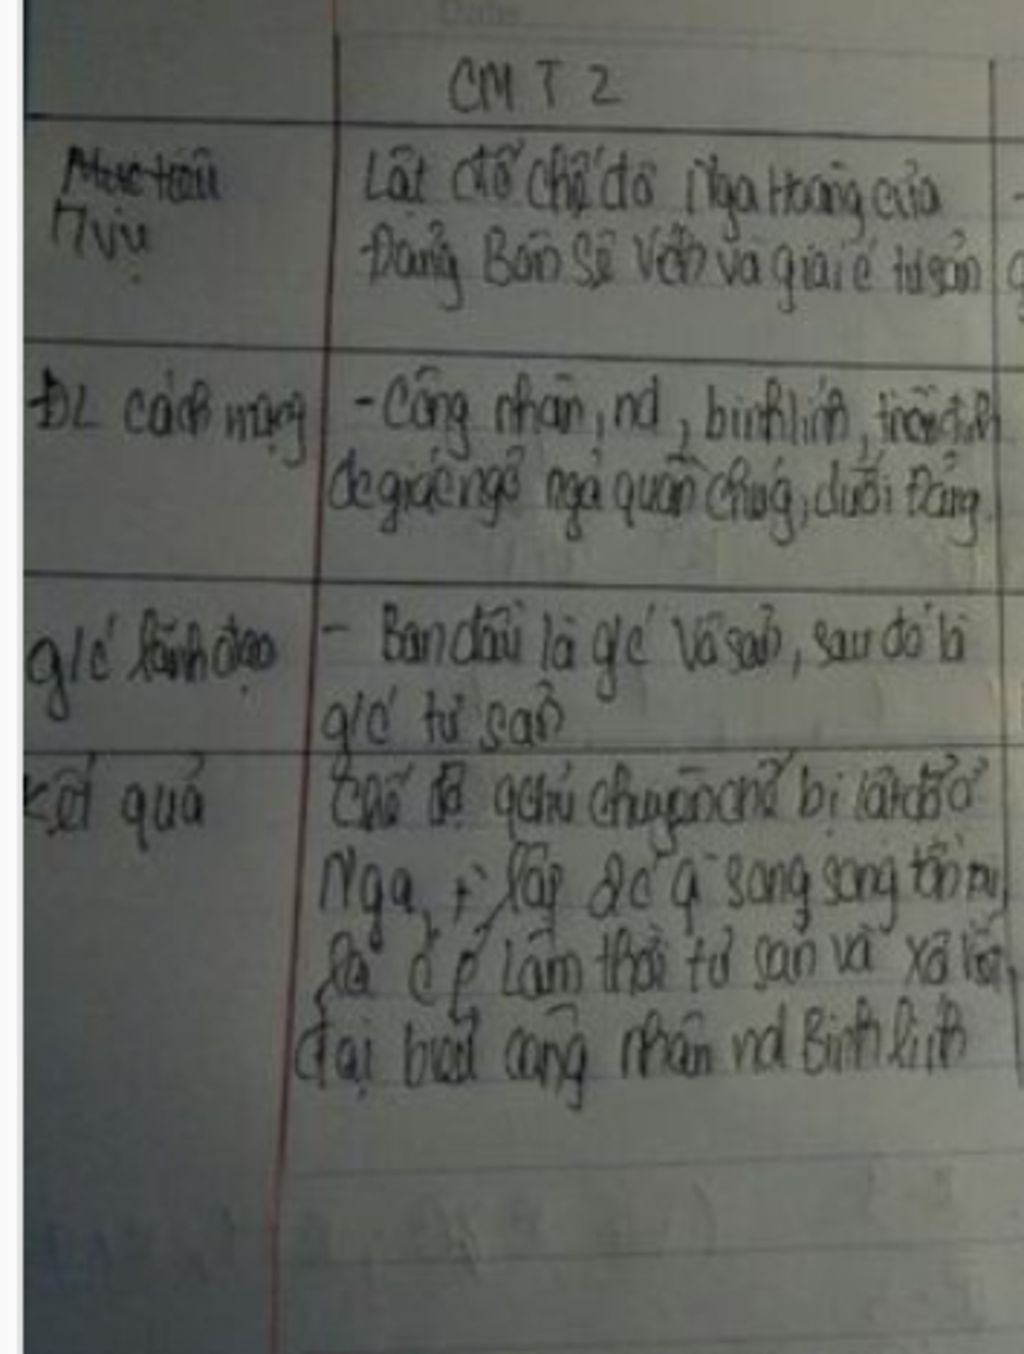 CM T 2
Mục tiêu
Nvụ
Lật đổ chế độ Nga Hoàng của
Đảng Bôn sê vích và giai c tư sản
ĐL cách mạng
- Công nhân, nd, binh lính,
giác ngộ quần chúng, dưới Đảng
g/c lãnh đạo
- Ban đầu là g/c Vô sản, sau đó là
g/c tư sản
Kết quả
Chế độ qchủ chuyên chế bị lật đổ ở
Nga, + lập 2 c q song song tồn tại
là c p Lâm thời tư sản và xô viết,
đại biểu công nhân nd Binh lính